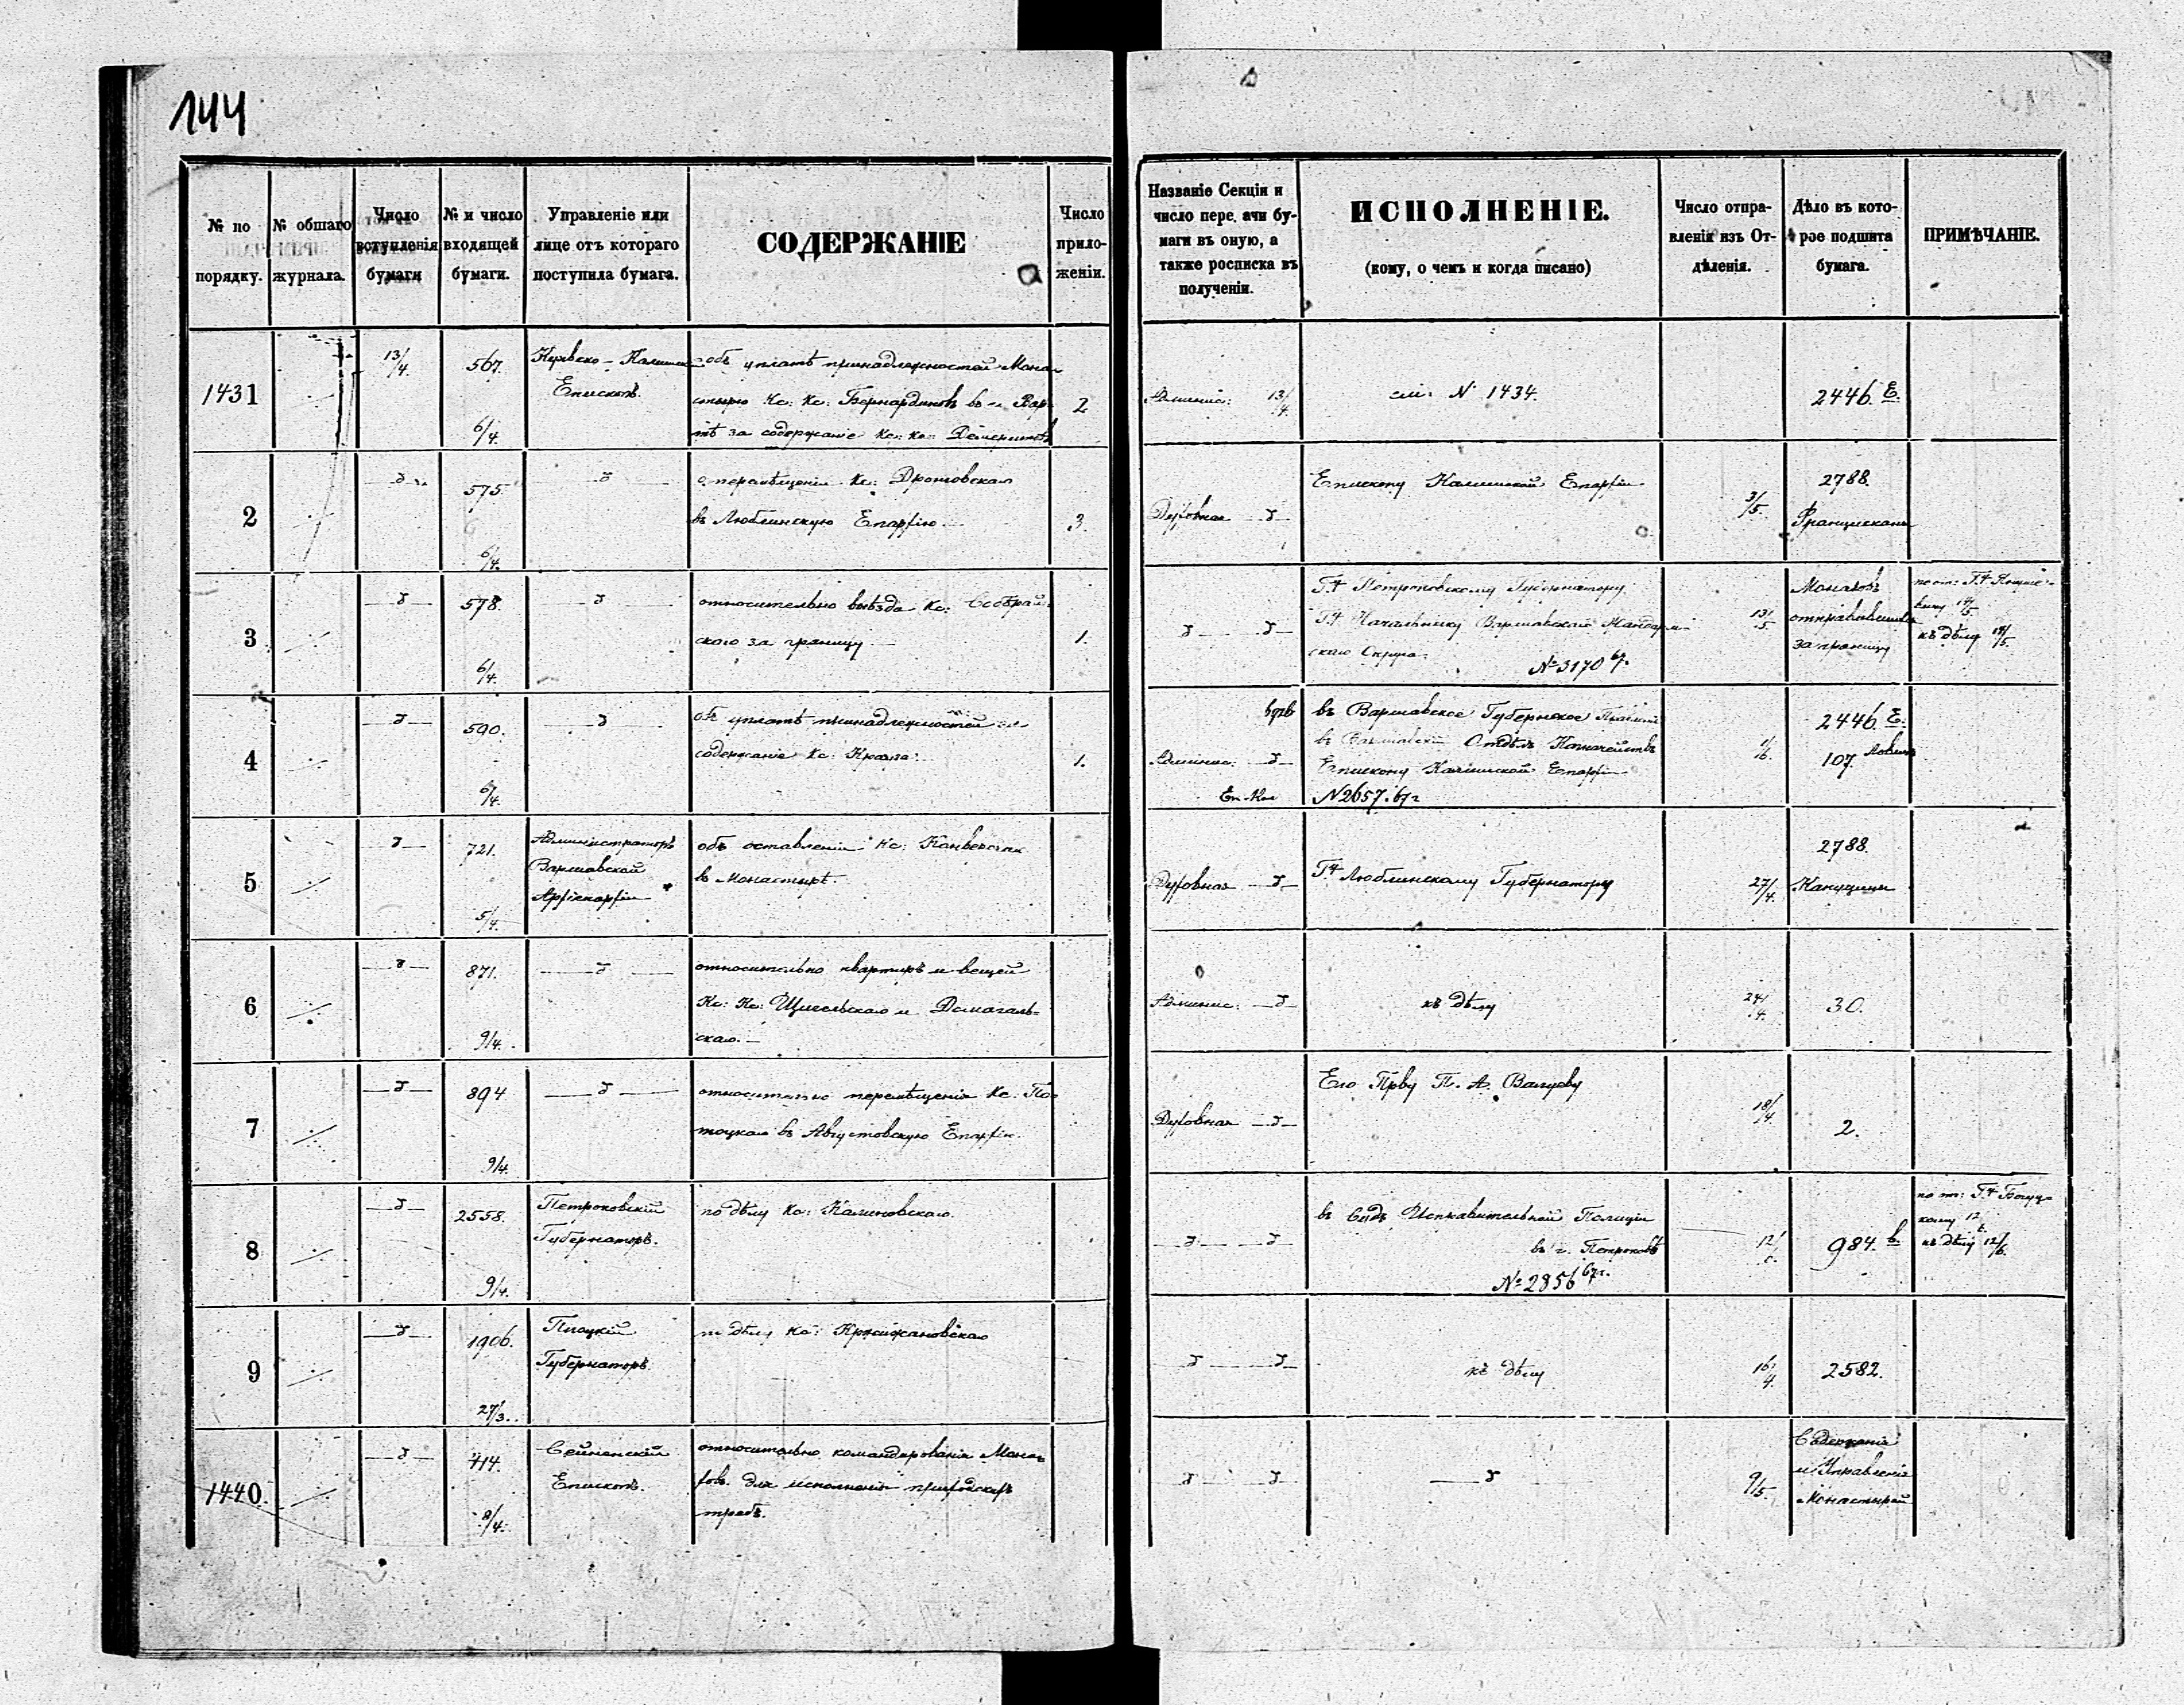 144
№ по порядку.
№ общаго журнала.
Число вступленія бумаги
№ и число входящей бумаги.
Управленіе или лице отъ котораго поступила бумага.
СОДЕРЖАНІЕ
Число приложеніи.
Названіе Секціи и число пере ачи бумаги въ оную, а также росписка въ полученіи.
ИСПОЛНЕНІЕ.
(кому, о чемъ и когда писано)
Число отправленія изъ Отдѣленія.
Дѣло въ которое подшита бумага.
ПРИМѢЧАНІЕ.
1431
13/4.
567.
6/4.
Калишск
Епископъ.
объ уплатѣ принадлежностей Мона-
стырю Кс: Кс: Бернардиновъ въ г. Вар-
тѣ за содержаніе Кс: Кс:
2
Админис: 13/4.
см: № 1434.
2446. Е.
2
575.
6/4.
о перемѣщеніи Кс:
въ Люблинскую Епархію
3.
Духовная
Епископу Калишской Епархіи
3/5.
2788.
Францискане
3
578.
6/4.
относительно выѣзда Кс:
скаго за границу
1.
Г.ну Петроковскому Губернатору
Г.ну Начальнику Варшавскаго Жандарм-
скаго Округа.
№ 3170 67.
13/5.
Монаховъ
отправившихся
за границу
къ дѣлу 14/5.
4
590.
6/4.
объ уплатѣ принадлежностей за
содержаніе Кс:
1.
Админис:
въ Варшавское Губернское Правлен
въ Варшавскій Отдѣлъ Казначейства
Епископу Калишской Епархіи
№ 2657. 67 г
1/6.
2446. Е.
107.
5
721.
5/4.
Администраторъ
Варшавской
Архіепархіи
объ оставленіи Кс:
въ Монастырѣ.
Духовная
Г.ну Люблинскому Губернатору
27/4.
2788.
Капуцины
6
871.
9/4.
относительно квартиръ и вещей
Кс: Кс: Щигельскаго и Домагаль-
скаго.
Админис:
къ дѣлу
24/4.
30.
7
894
9/4.
относительно перемѣщенія Кс. По-
тоцкаго въ Августовскую Епархію.
Духовная
Его Прву П. А. Валуеву
18/4.
2.
8
2558.
9/4.
Петроковскій
Губернаторъ.
по дѣлу Кс: Калиновскаго.
въ Судъ Исправительной Полиціи
въ г. Петроковѣ
№ 2856 67 г.
12/6.
984. в.
къ дѣлу 12/6.
9
1906.
27/3.
Плоцкій
Губернаторъ.
по дѣлу Кс: Кржижановскаго
къ дѣлу
16/4.
2582.
1440.
714.
8/4.
Сейненскій
Епископъ.
относительно командированія Мона-
ховъ для исполненія приходскихъ
требъ.
9/5.
Содержанія
и Управленія
Монастырей